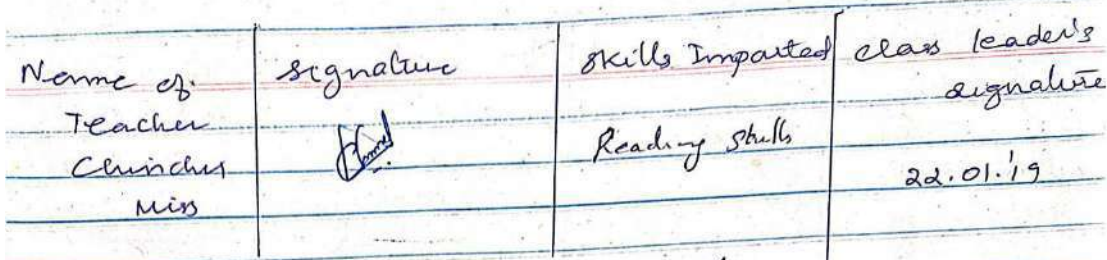 Name of Teacher
signature
skills Imparted
class leader's signature
Chinchu Miss
Reading Skills
22.01.19